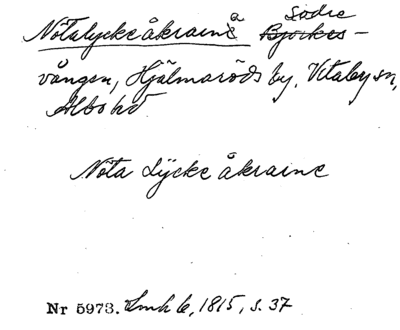 Nötalyckeåkraine å Södre
vången, Hjälmaröds by, Vitaby sn,
Albo hd.
Nöta Lÿcke åkraine
Nr 5973. Lmh 6, 1815, s. 37